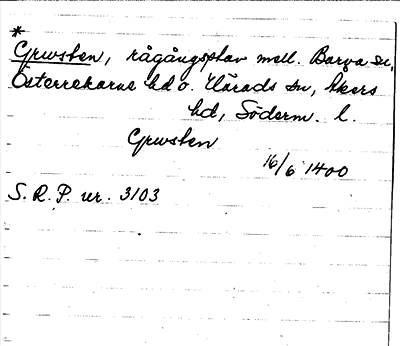 *
Gjwsten, rågångsstav mell. Barva sn,
Österrekarne hd o. Härads sn, Åkers
hd, Söderm. l.
Gjwsten
16/6 1400
S. R. P. nr. 3103